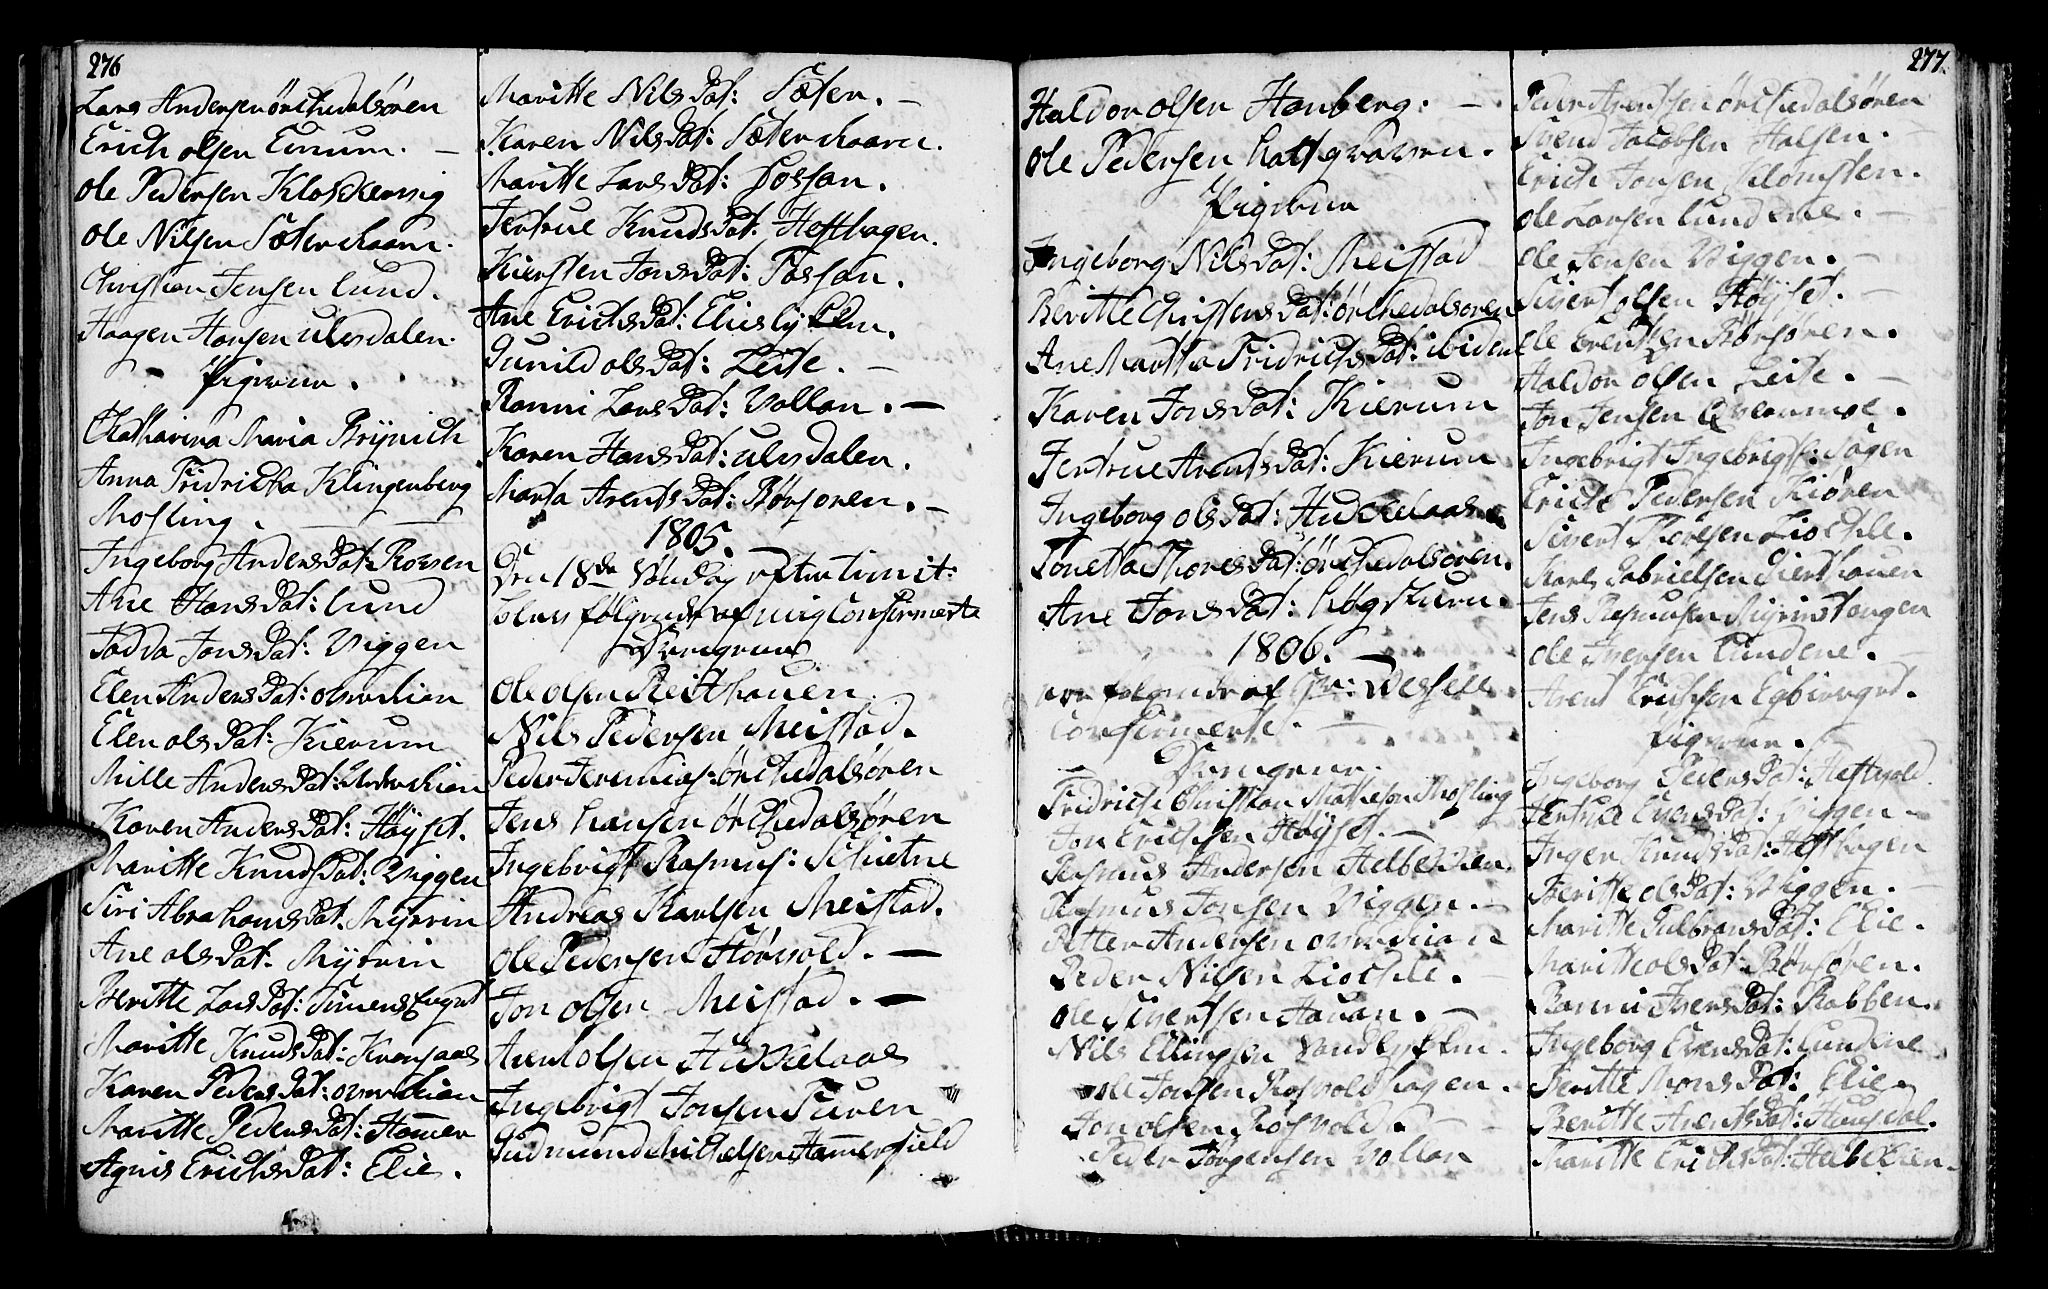 276
Lars Andersen örchedalsören
Erich olsen Eirum. —
ole Pedersen Kloskervig
ole Nilsen Sæter
Christian Jensen Lund.
Haagen Hansen ulvsdalen.
Pigerne.
Chatharina Maria Brÿnich
Anna Fridricha Klingenberg
Mosling. —
Ingeborg Anders Dat: Roven
Ane Hans Dat: Lund
Jon's Dat: Viggen
Elen Anders Dat:
Elen ols Dat: Kierum
Mille Anders Dat:
Karen Anders Dat: Höÿset.
Maritte Knuds Dat: Viggen
Siri Abrahams Dat: Mÿrvin
Ane ols Dat: Mÿrvin
Beritte Lars Dat:
Maritte Knuds Dat:
Karen Peders Dat:
Maritte Peders Dat: Hammer
Agnis Erichs Dat: Elie.
Maritte Nils Dat: Sæter. —
Karen Nils Dat: Sæter
Maritte Lars Dat: Fossan.
Jertrue Knuds Dat: Hesthagen.
Kiersten Jons Dat: Fossan.
Ane Erichs Dat:
Gunild ols Dat: Leite. —
Ranni Lars Dat: Vollan. —
Karen Hans Dat: ulvsdalen.
Marta Arents Dat: Börsören. —
1805.
Den 18de Söndag efter trinit:
blev fölgende af mig Confirmerte
Drengene
ole olsen Reithauen
Nils Pedersen Meistad.
Peder Jeremias: örchedalsören
Jens Hansen örchedalsören
Ingebrigt Rasmus: Schietne
Andreas Karlsen Meistad.
ole Pedersen Störvold. —
Jon olsen Meistad. —
Arent olsen Huckelaas
Ingebrigt Jonsen Tuven
Gudmund Michelsen Hammersfield
Haldor olsen Hanberg. —
ole Pedersen
Pigerne
Ingeborg Nils Dat: Meistad
Beritte Christens Dat: örchedalsören
Ane Martha Fridrichs Dat: ibidem
Karen Jons Dat: Kierum
Jertrue Arents Dat: Kierum
Ingeborg ols Dat: Huckelaas
Tonetta Thores Dat: örchedalsören.
Ane Jons Dat:
1806. —
ere fölgende af Hr: Wessell
Confirmerte. —
Drengene.
Fridrich Christian Mathison Mosling
Jon Erichsen Höÿset. —
Rasmus Andersen Helbekken.
Rasmus Jonsen Viggen. —
Petter Andersen
Peder Nilsen Liochle. —
ole Sivertsen Hauan. —
Nils Ellingsen
ole Jonsen Rosvoldhagen.
Jon olsen Rosvold. —
Peder Jörgensen Vollan
277.
Peder Arentsen örchedalsören
Svend Jacobsen Halsen. —
Erich Jonsen
ole Larsen Lundene. —
ole Jensen Viggen. —
Sivert olsen Höÿset. —
ole Börsören.
Haldor olsen Leite. —
Jon Jensen
Ingebrigt Ingebrigts: Sagen
Erich Pedersen Kiören
Sivert Liochle.
Karl Gabrielsen
Jens Rasmusen
ole Iversen Lundene. —
Arent Erichsen
Pigerne.
Ingeborg Peders Dat: Hestvold
Jertrue Evens Dat: Viggen —
Inger Knuds Dat: Hesthagen
Beritte ols Dat: Viggen. —
Maritte Gulbrans Dat: Elie.
Maritte ols Dat: Börsören.
Ranni Ivers Dat: Rabben.
Ingeborg Evens Dat: Lundene
Beritte Mons Dat: Elie.
Beritte Arents Dat:
Maritte Erichs Dat: Helbekken.